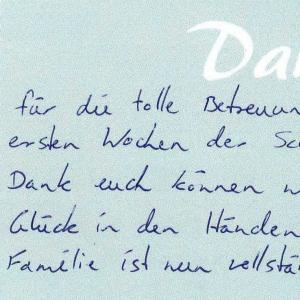 Da
für die tolle Betreuun
ersten Wochen der Sc
Dank euch können w
Glück in den Händen
Familie ist nun vollstä